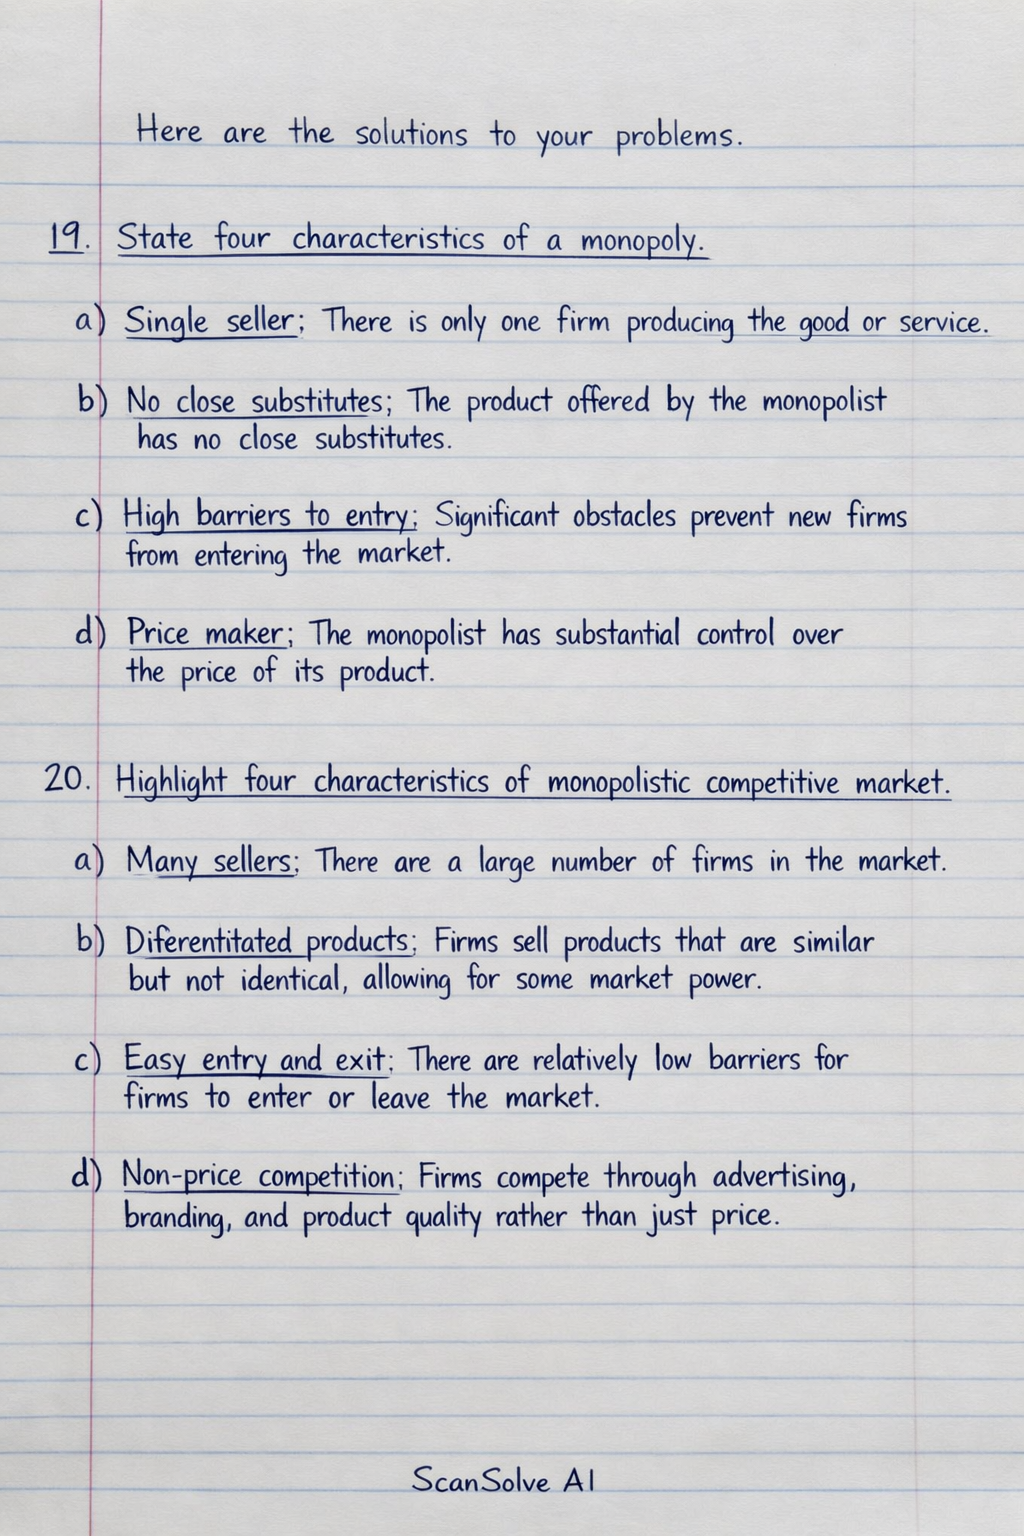 Here are the solutions to your problems.
19. State four characteristics of a monopoly.
a) Single seller; There is only one firm producing the good or service.
b) No close substitutes; The product offered by the monopolist
has no close substitutes.
c) High barriers to entry; Significant obstacles prevent new firms
from entering the market.
d) Price maker; The monopolist has substantial control over
the price of its product.
20. Highlight four characteristics of monopolistic competitive market.
a) Many sellers; There are a large number of firms in the market.
b) Diferentitated products; Firms sell products that are similar
but not identical, allowing for some market power.
c) Easy entry and exit; There are relatively low barriers for
firms to enter or leave the market.
d) Non-price competition; Firms compete through advertising,
branding, and product quality rather than just price.
ScanSolve AI